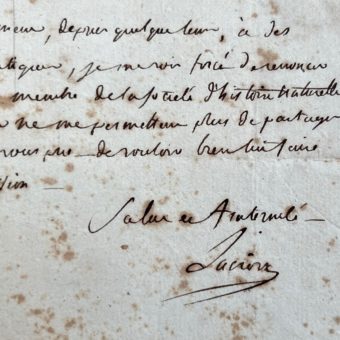 depuis quelque tems, à des
je me vois forcé de renoncer
membre de la société d'histoire naturelle
ne me permettent plus de partager
vous prie de vouloir bien lui faire
Salut et fraternité